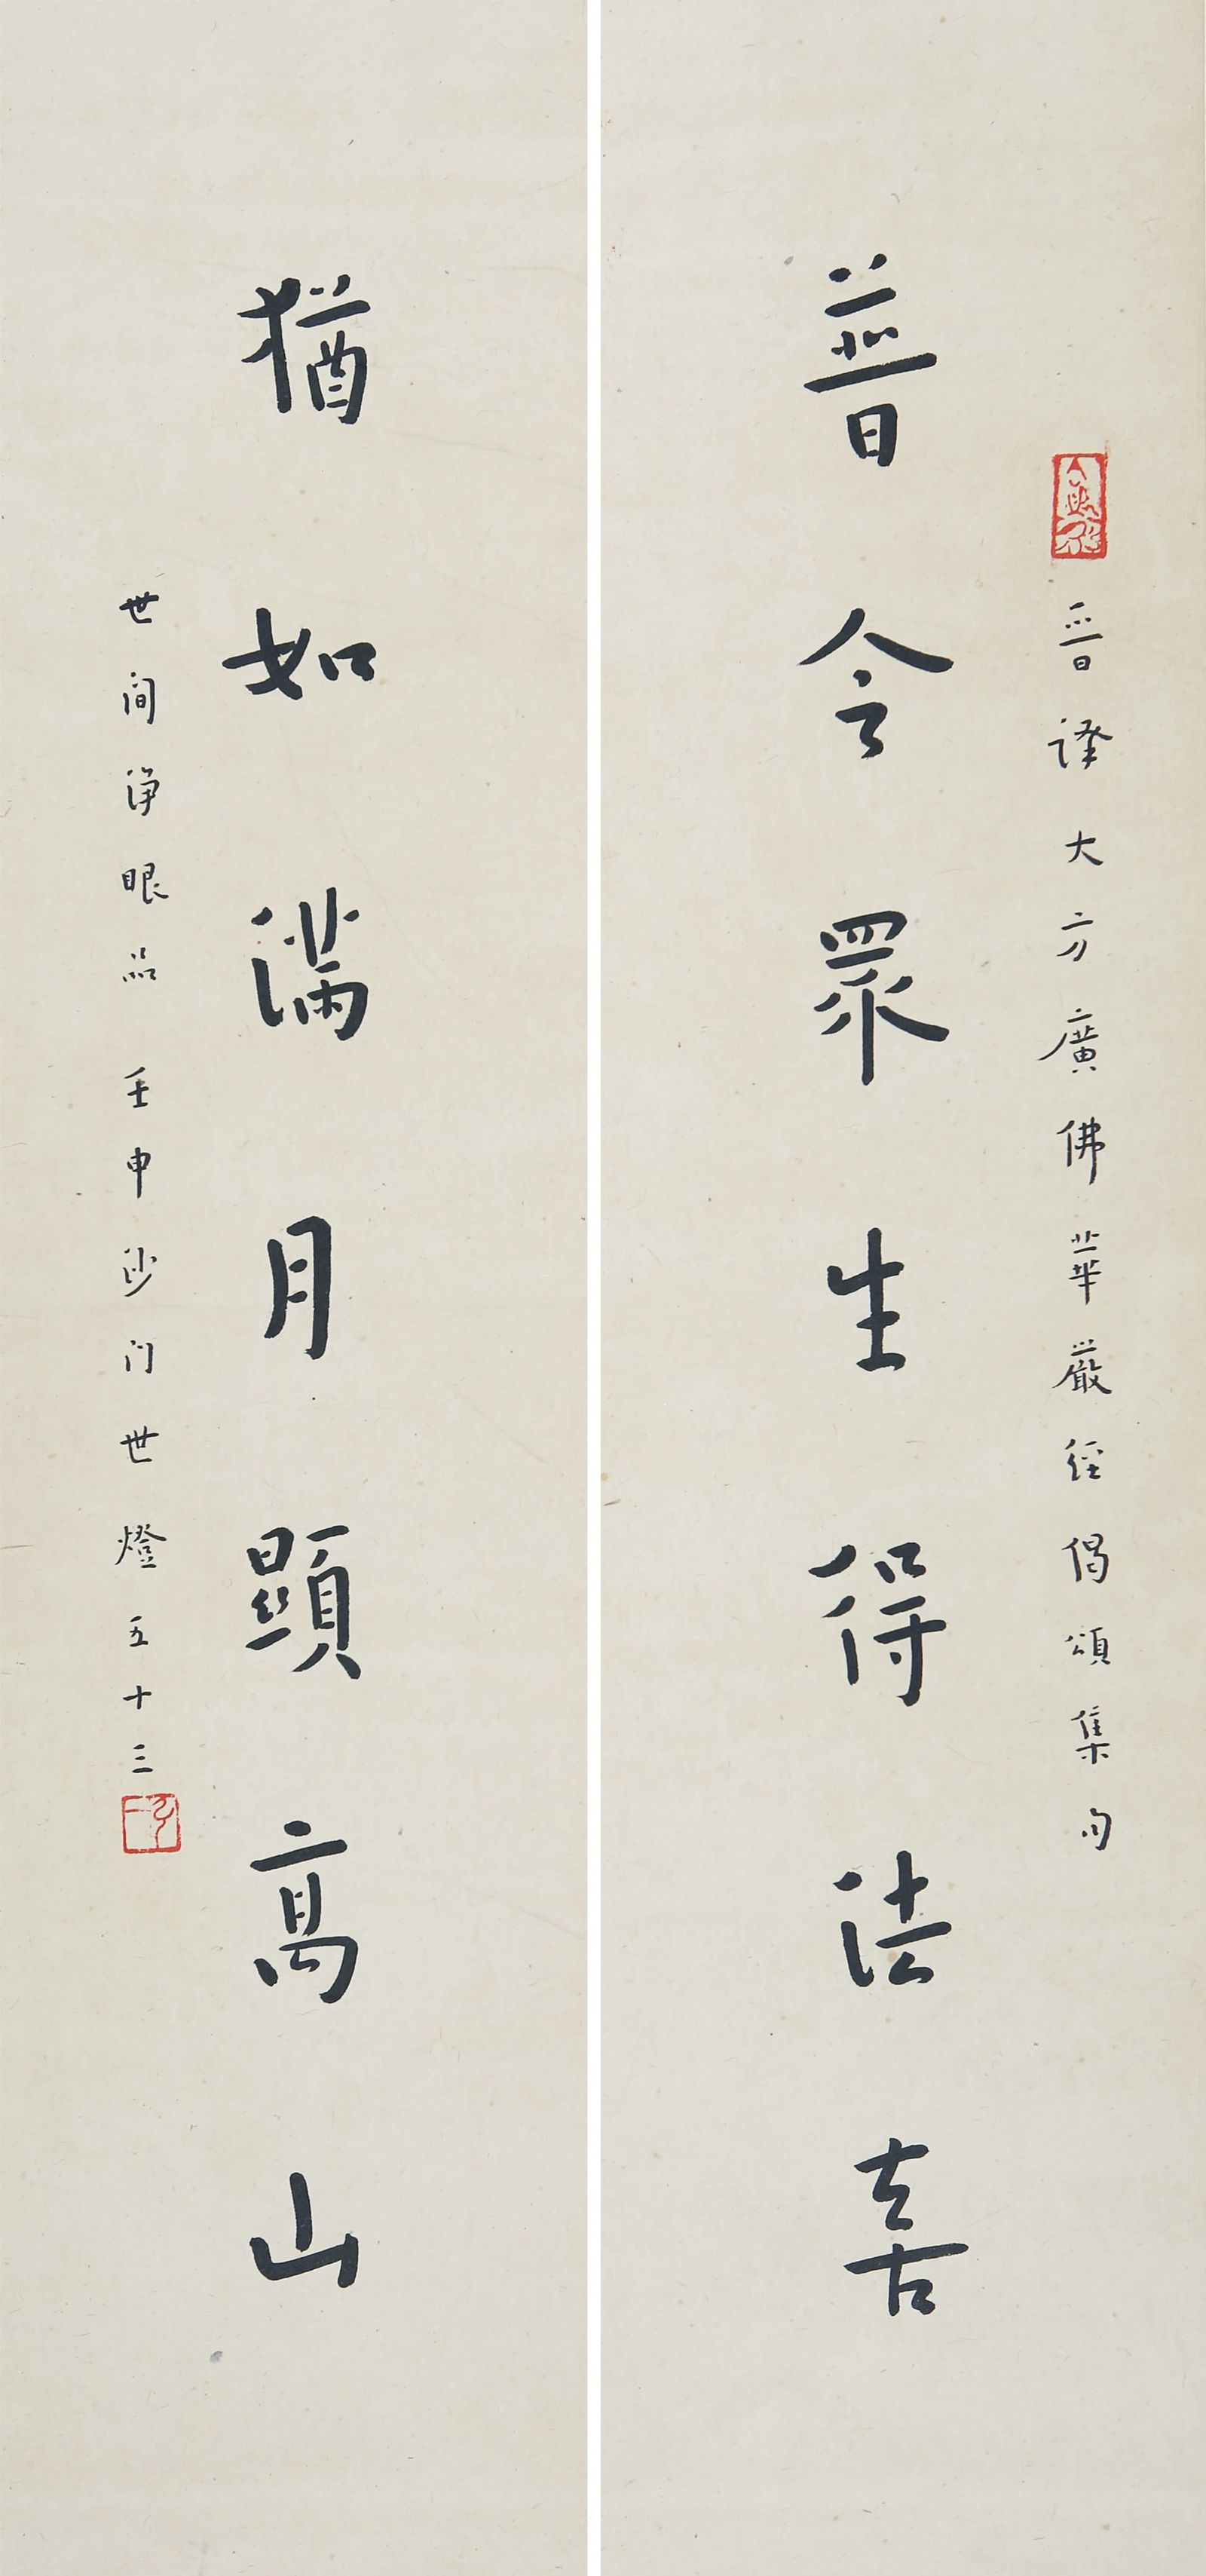 晉譯大方廣佛華嚴經偈頌集句
普令眾生得法喜
猶如滿月顯高山
世间淨眼品 壬申沙门世燈五十三